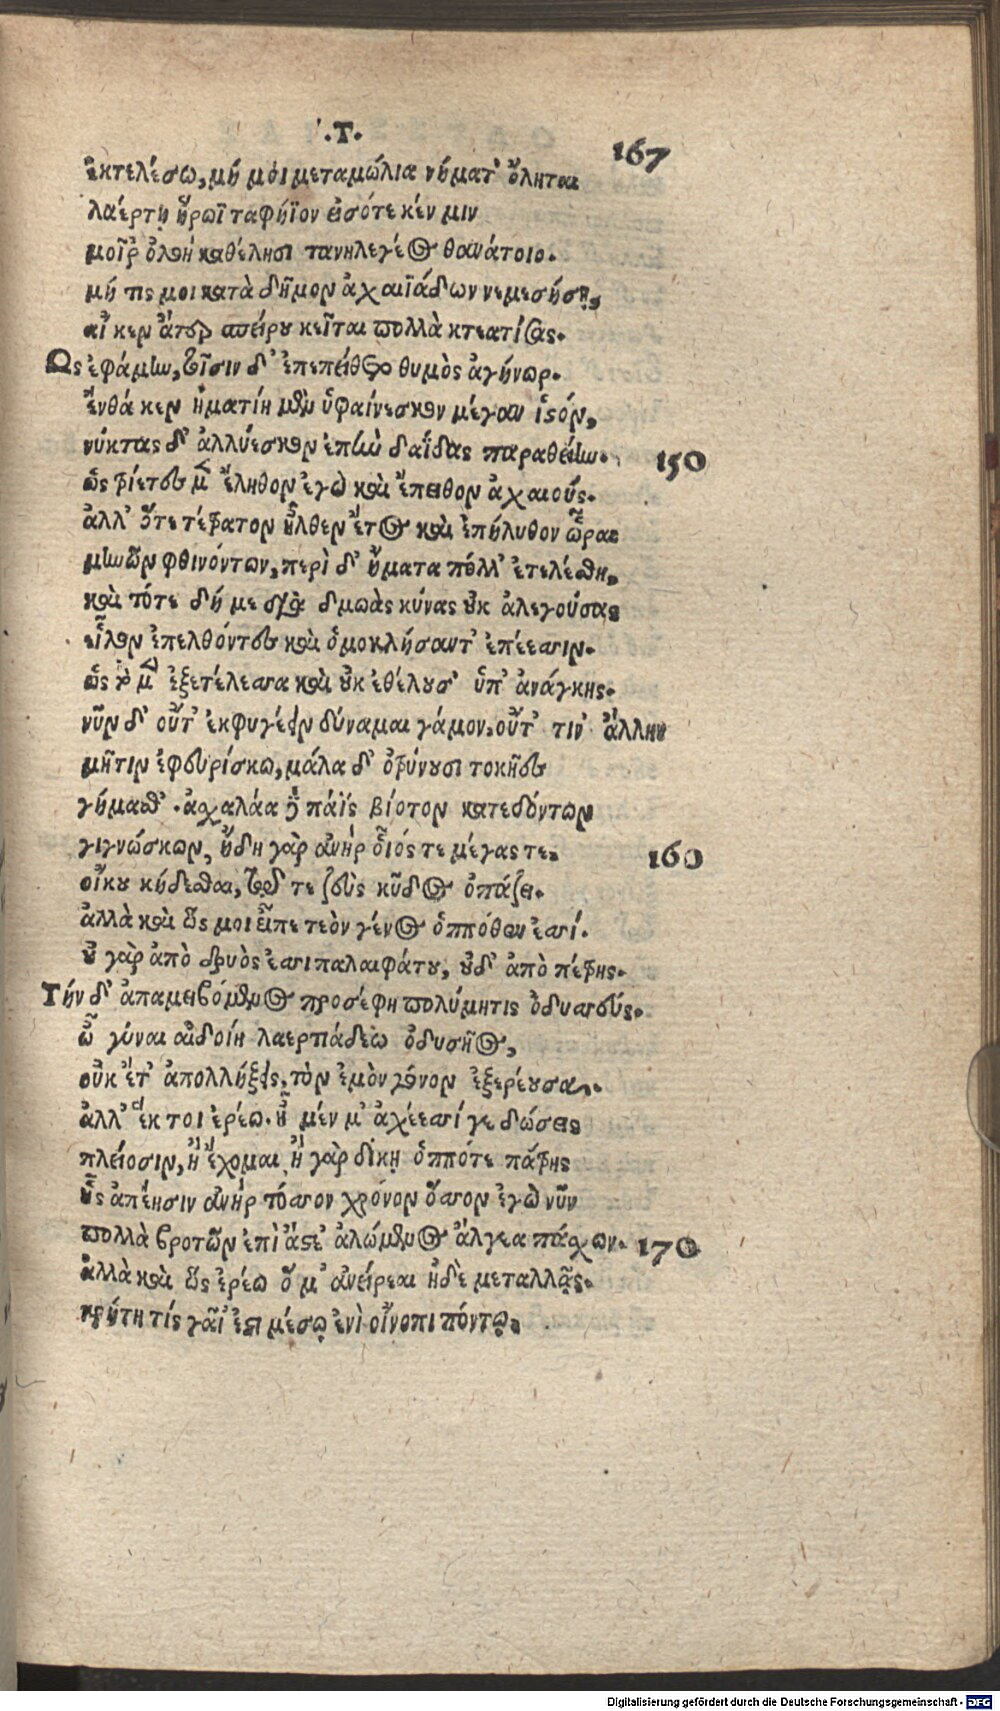 .Τ.
167
ἐκτελέσω, μή μοι μεταμώλια νήματ' ὄληται
λαέρτῃ ἥρωϊ ταφήϊον εἰσότε κέν μιν
μοῖρ' ὀλοὴ καθέλησι τανηλεγέος θανάτοιο.
μή τις μοι κατὰ δῆμον ἀχαιϊάδων νεμεσήσῃ,
αἴ κεν ἄτερ σπείρου κεῖται πολλὰ κτεατίσας.
Ως ἐφάμην, τοῖσιν δ' ἐπεπείθετο θυμὸς ἀγήνωρ.
ἔνθά κεν ἠματίη μὲν ὑφαίνεσκεν μέγαν ἱστόν,
νύκτας δ' ἀλλύεσκον ἐπὴν δαΐδας παραθείμην. 150
ὣς τρίετες μὲν ἔληθον ἐγὼ καὶ ἔπειθον ἀχαιούς.
ἀλλ' ὅτε τέτρατον ἦλθεν ἔτος καὶ ἐπήλυθον ὧραι
μηνῶν φθινόντων, περὶ δ' ἤματα πόλλ' ἐτελέσθη,
καὶ τότε δή με διὰ δμωὰς κύνας οὐκ ἀλεγούσας
εἷλον ἐπελθόντες καὶ ὁμοκλήσαντ' ἐπέεσσιν.
ὣς τὸ μὲν ἐξετέλεσσα καὶ οὐκ ἐθέλουσ' ὑπ' ἀνάγκης.
νῦν δ' οὔτ' ἐκφυγέειν δύναμαι γάμον, οὔτ' τιν' ἄλλην
μῆτιν ἐφευρίσκω, μάλα δ' ὀτρύνουσι τοκῆες
γήμασθ'. ἀσχαλάα δὲ πάϊς βίοτον κατεδόντων
γιγνώσκων, ἤδη γὰρ ἀνὴρ οἷός τε μέγας τε. 160
οἴκου κήδεσθαι, τῷ τε ζεὺς κῦδος ὀπάζει.
ἀλλὰ καὶ ὥς μοι εἶπε τεὸν γένος ὁππόθεν ἐσσί.
οὐ γὰρ ἀπὸ δρυὸς ἐσσι παλαιφάτου, οὐδ' ἀπὸ πέτρης.
Τὴν δ' ἀπαμειβόμενος προσέφη πολύμητις ὀδυσσεύς.
ὦ γύναι αἰδοίη λαερτιάδεω ὀδυσῆος,
οὐκ ἔτ' ἀπολλήξεις, τὸν ἐμὸν γόνον ἐξερέουσα.
ἀλλ' ἔκ τοι ἐρέω. ἦ μέν μ' ἀχέεσσί γε δώσεις
πλείοσιν, ἢ ἔχομαι, ἡ γὰρ δίκη ὁππότε πάτρης
ἧς ἀπέησιν ἀνὴρ τόσσον χρόνον ὅσσον ἐγὼ νῦν
πολλὰ βροτῶν ἐπὶ ἄστε' ἀλώμενος ἄλγεα πάσχων. 170
ἀλλὰ καὶ ὣς ἐρέω ὅ μ' ἀνείρεαι ἠδὲ μεταλλᾷς.
κρήτη τίς γαῖ' ἔστι μέσῳ ἐνὶ οἴνοπι πόντῳ,
Digitalisierung gefördert durch die Deutsche Forschungsgemeinschaft - DFG